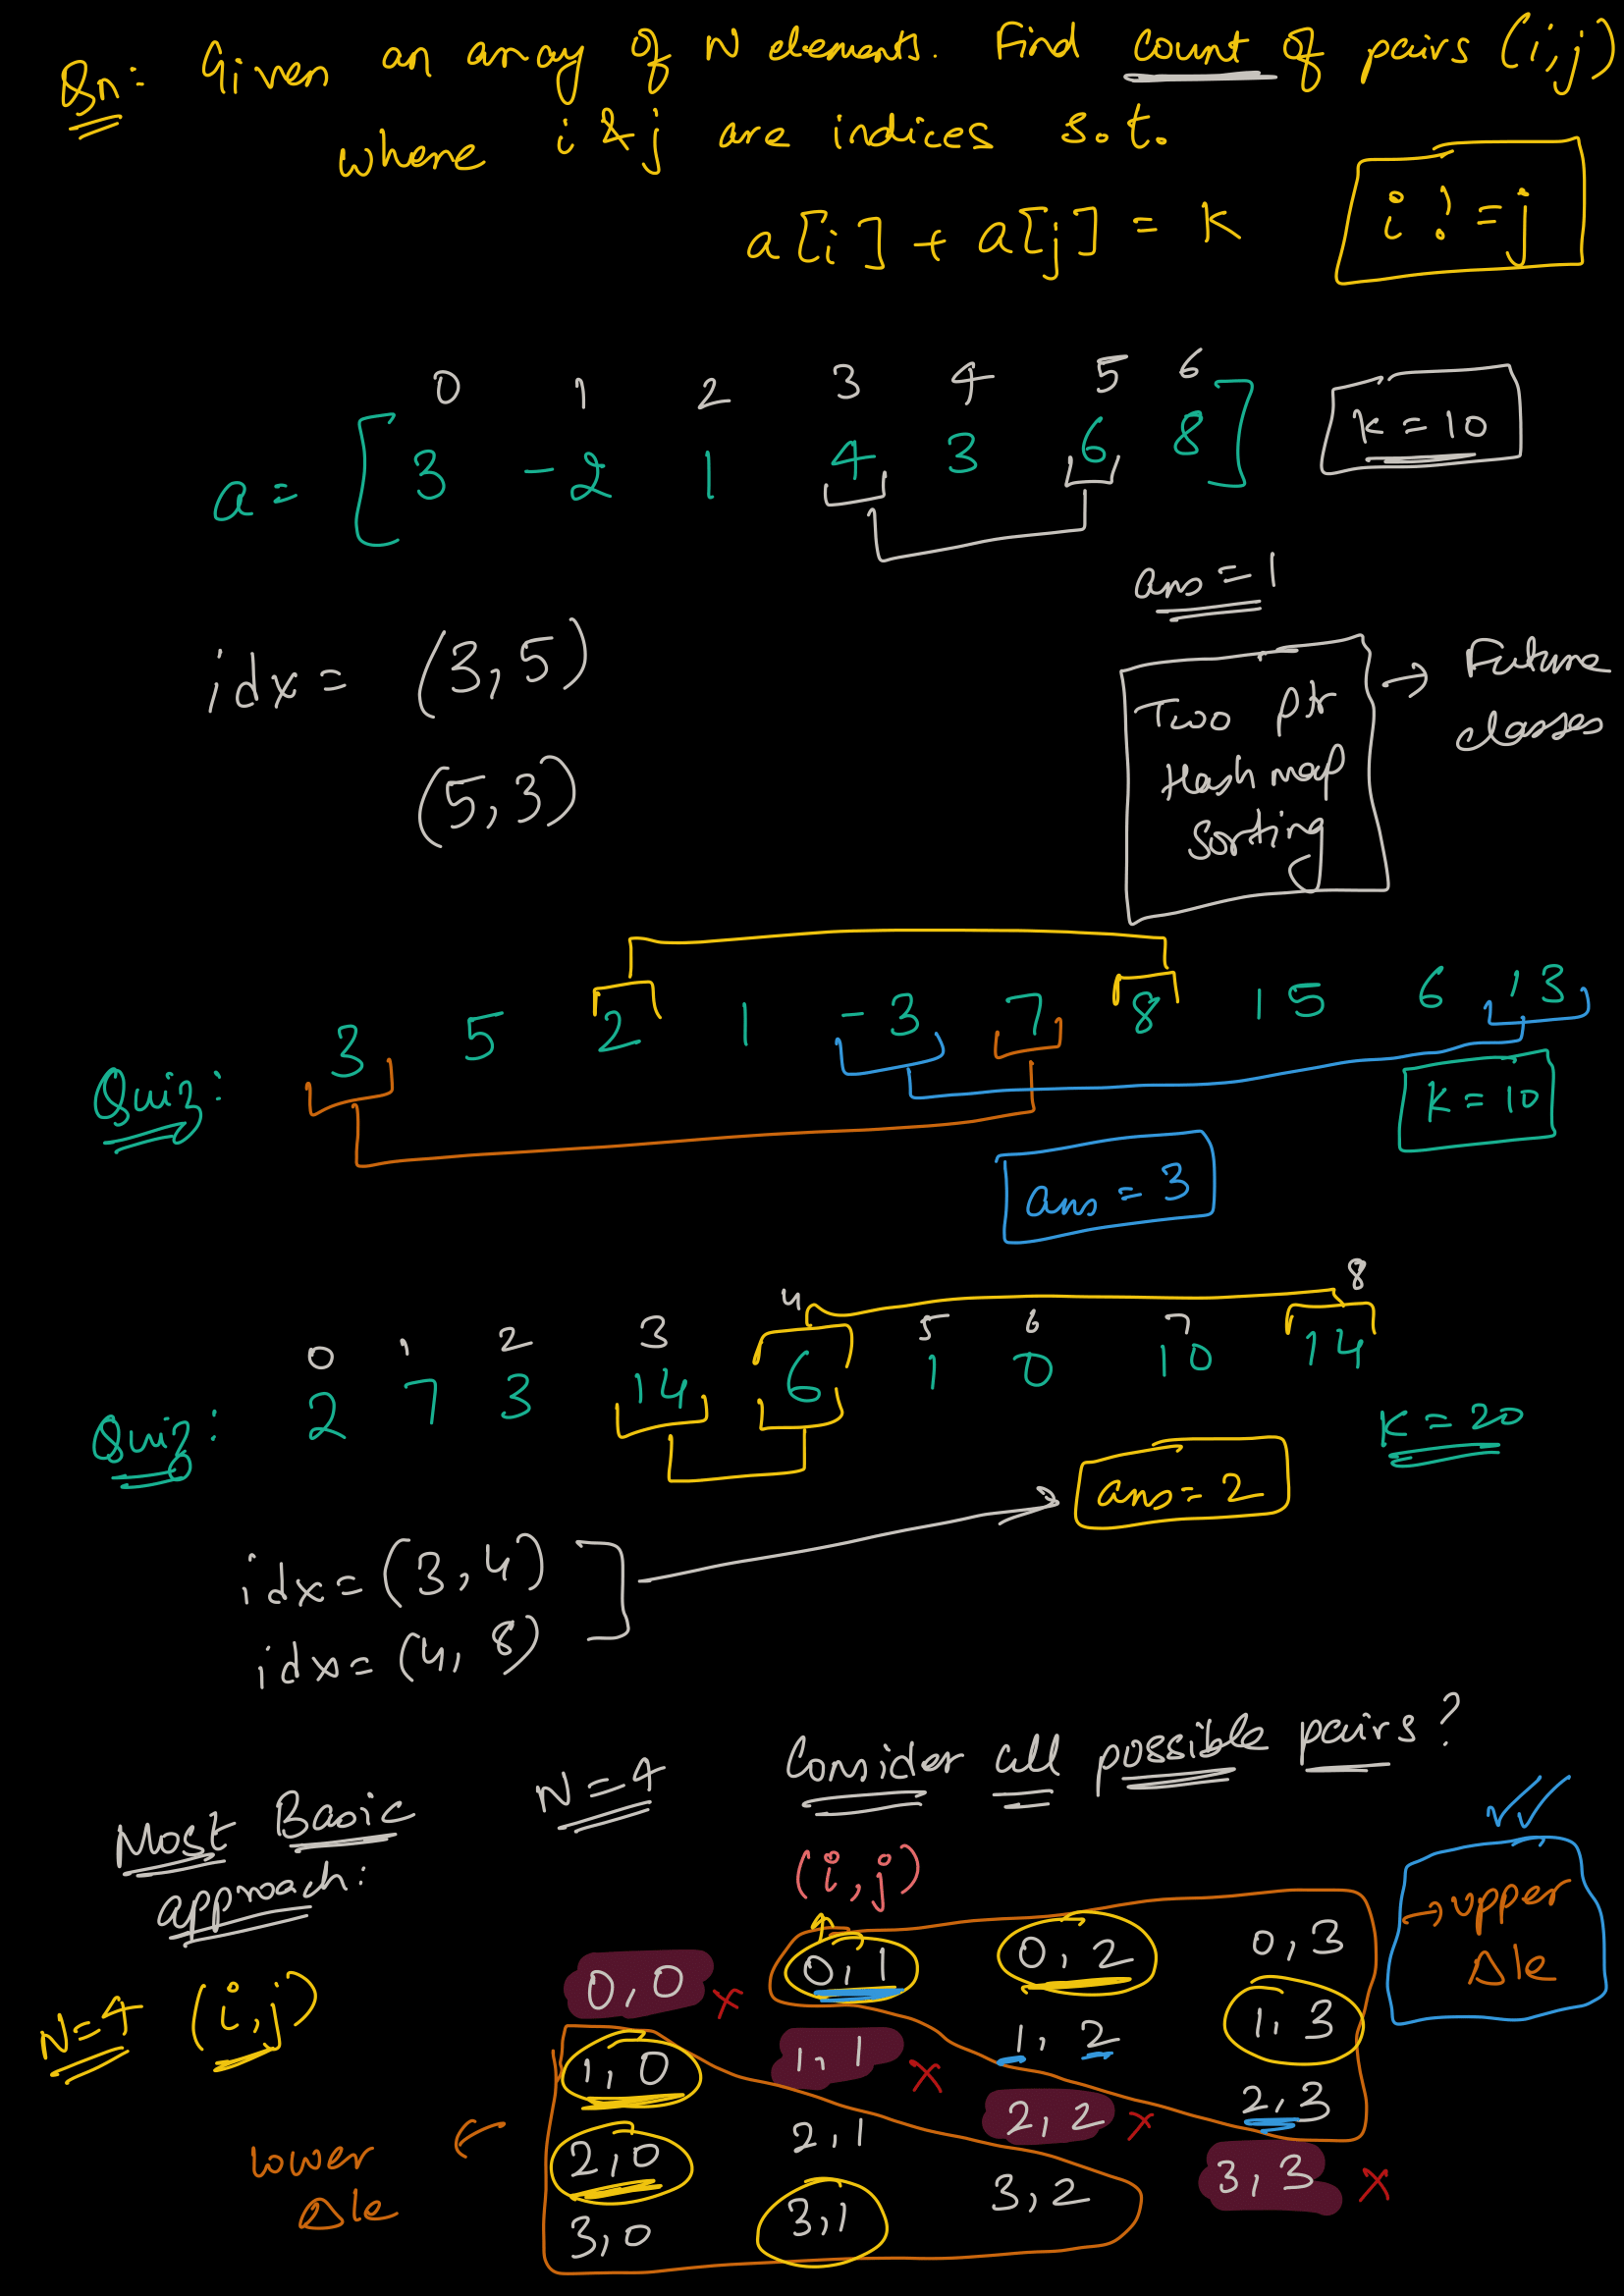 Qn: Given an array of N elements. Find count of pairs (i,j)
where i & j are indices s.t.
a[i] + a[j] = K
i != j
0 1 2 3 4 5 6
a = [ 3 -2 1 4 3 6 8 ]
K = 10
ans = 1
idx = (3,5)
(5,3)
Two ptr
Hash map
Sorting
→ Future
classes
Quiz: 3 5 2 1 -3 7 8 15 6 13
K = 10
ans = 3
0 1 2 3 4 5 6 7 8
Quiz: 2 7 3 14 6 1 0 10 14
K = 20
ans = 2
idx = (3,4)
idx = (4,8)
Most Basic
approach:
N=4
Consider all possible pairs?
(i,j)
N=4 (i,j)
0,0 x 0,1 0,2 0,3
1,0 1,1 x 1,2 1,3
2,0 2,1 2,2 x 2,3
3,0 3,1 3,2 3,3 x
→ upper
Δle
lower
Δle